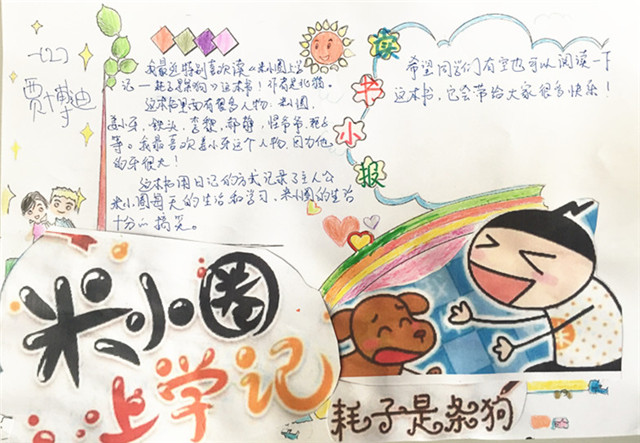 一(2)
贾博迪
我最近特别喜欢读《米小圈上学
记—耗子是条狗》这本书！作者是北猫。
这本书里面有很多人物：米小圈、
姜小牙、铁头、李黎、郝静、怪爷爷、
等。我最喜欢姜小牙这个人物，因为他
的牙很大！
这本书用日记的方式记录了主人公
米小圈每天的生活和学习，米小圈的生活
十分的搞笑。
读书小报
希望同学们有空也可以阅读一下
这本书，它会带给大家很多快乐！
米小圈
上学记
耗子是条狗